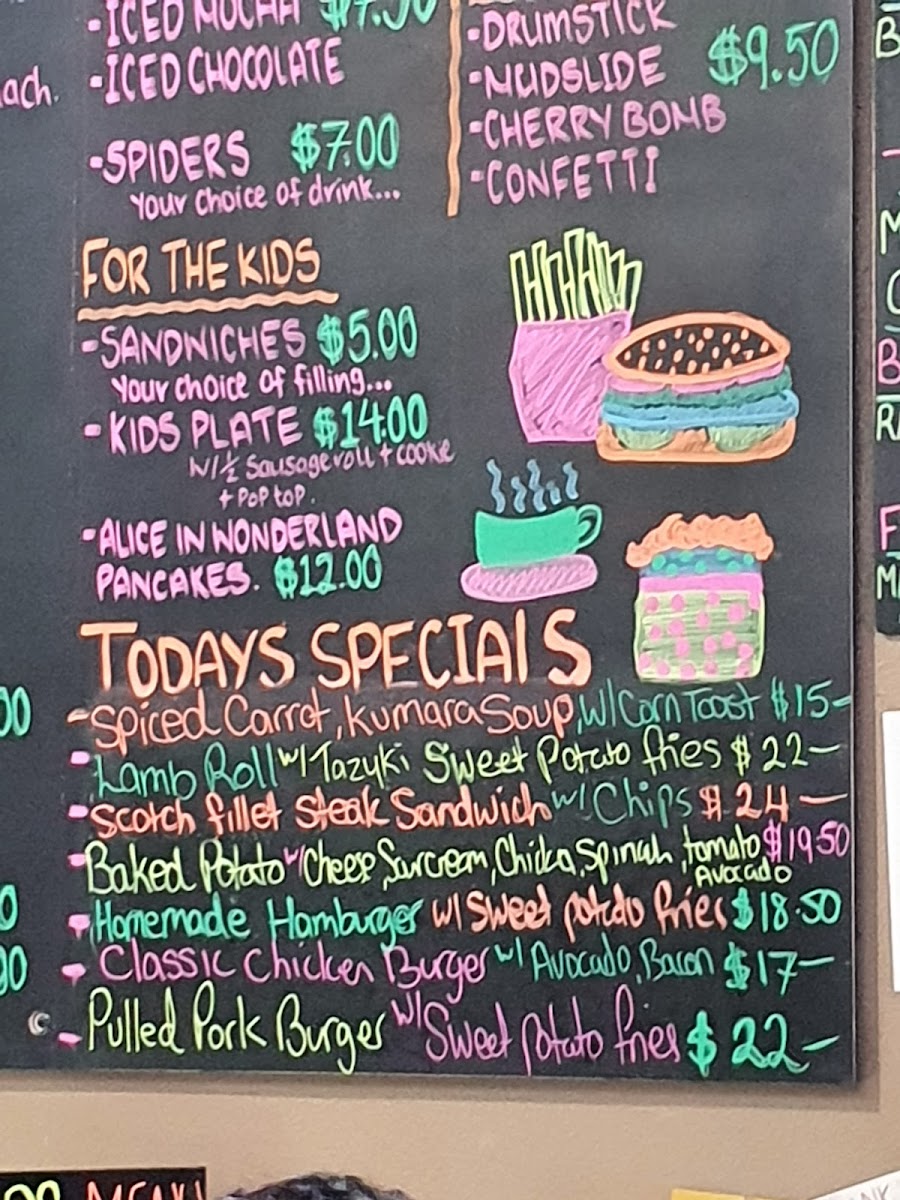 -ICED MOCHA $7.50
-ICED CHOCOLATE
-SPIDERS $7.00
your choice of drink...
-DRUMSTICK
-MUDSLIDE $9.50
-CHERRY BOMB
-CONFETTI
FOR THE KIDS
-SANDWICHES $5.00
your choice of filling...
- KIDS PLATE $14.00
W/ ½ Sausage roll + cookie
+ Pop top.
-ALICE IN WONDERLAND
PANCAKES. $12.00
TODAYS SPECIALS
-Spiced Carrot, Kumara Soup, W/ Corn Toast $15-
- Lamb Roll w/ Tazuki Sweet Potato fries $22-
- Scotch fillet Steak Sandwich w/ Chips $24-
- Baked Potato w/ Cheese, Surcream, Chicka, Spinach, tomato $19.50
Avocado
- Homemade Hamburger w/ Sweet potato fries $18.50
- Classic Chicken Burger w/ Avocado, Bacon $17-
- Pulled Pork Burger w/ Sweet potato fries $22-
MENU